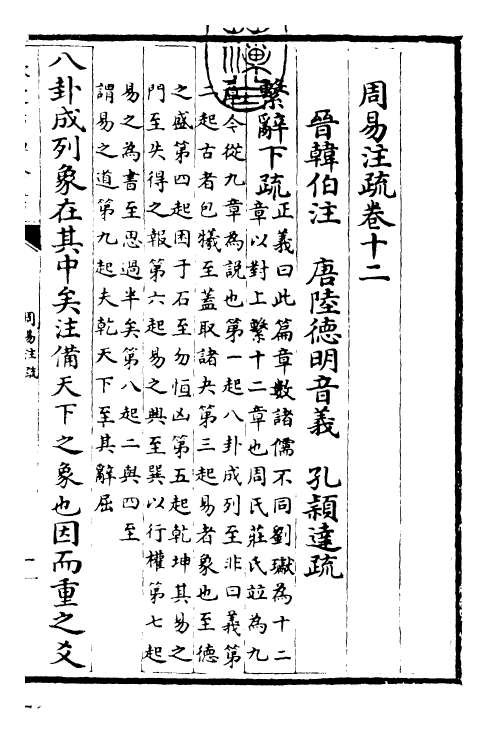 周易注疏卷十二
晉韓伯注　唐陸德明音義　孔穎達疏
繫辭下疏
正義曰此篇章數諸儒不同劉瓛為十二
章以對上繫十二章也周氏莊氏竝為九
章今從九章為說也第一起八卦成列至非曰義第
二起古者包犧至蓋取諸夬第三起易者象也至德
之盛第四起困于石至勿恒凶第五起乾坤其易之
門至失得之報第六起易之興至巽以行權第七起
易之為書至思過半矣第八起二與四至
謂易之道第九起夫乾天下至其辭屈
八卦成列象在其中矣注備天下之象也因而重之爻
周易注疏
一